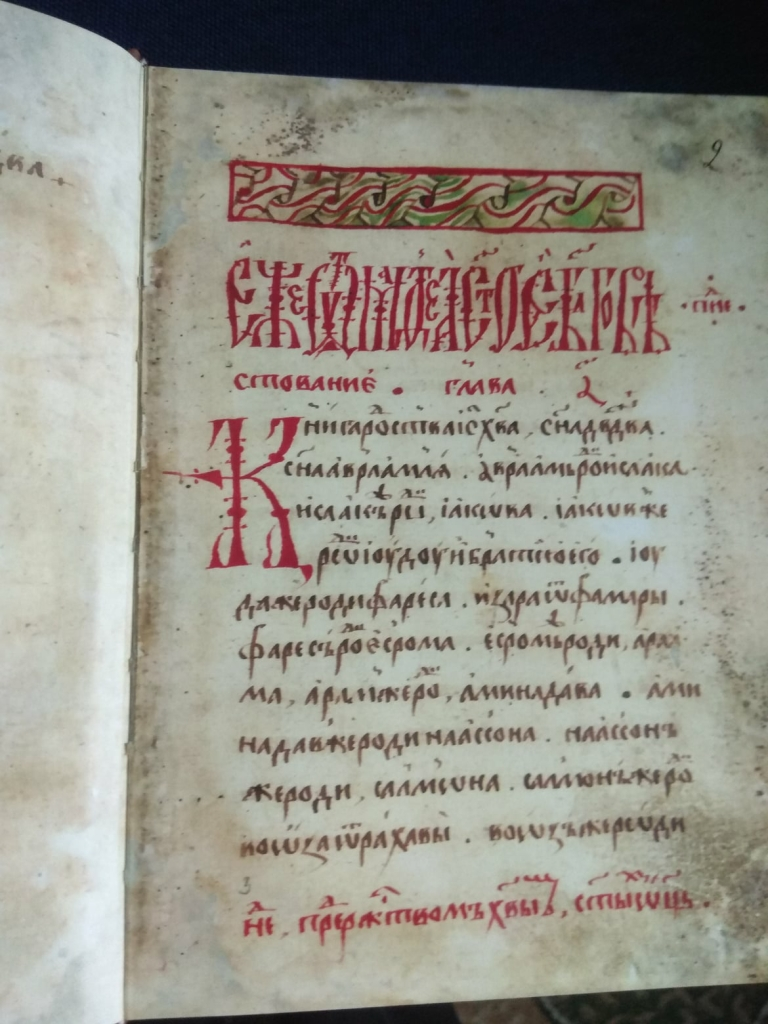 2
Еже ѿ Матеа ст҃ое бл҃говѣ
ствование . глава . а҃
Книга рⷪ҇ства і҃с х҃ва , сн҃а дв҃два .
сн҃а авраамлѧ . авраамъ роⷣ исаака
исаакъ рⷣ , іакѡва . іакѡв же
рⷪ҇ іоудоу и братїю его . іоу
да же роди фареса . и зара ѿ фамары .
фарес же рⷪ҇ есрома . есромъ роди , ара
ма , арам же рⷪ҇ , аминадава . ами
надав же роди наассона . наассонъ
же роди , салмѡна . салмонъ же рⷪ҇
воѡза ѿ рахавы . воѡзъ же рѡди
3
нⷣе , прⷣе ржⷭ҇твомъ хв҃ымъ , ст҃ыⷯ ѡц҃ъ .